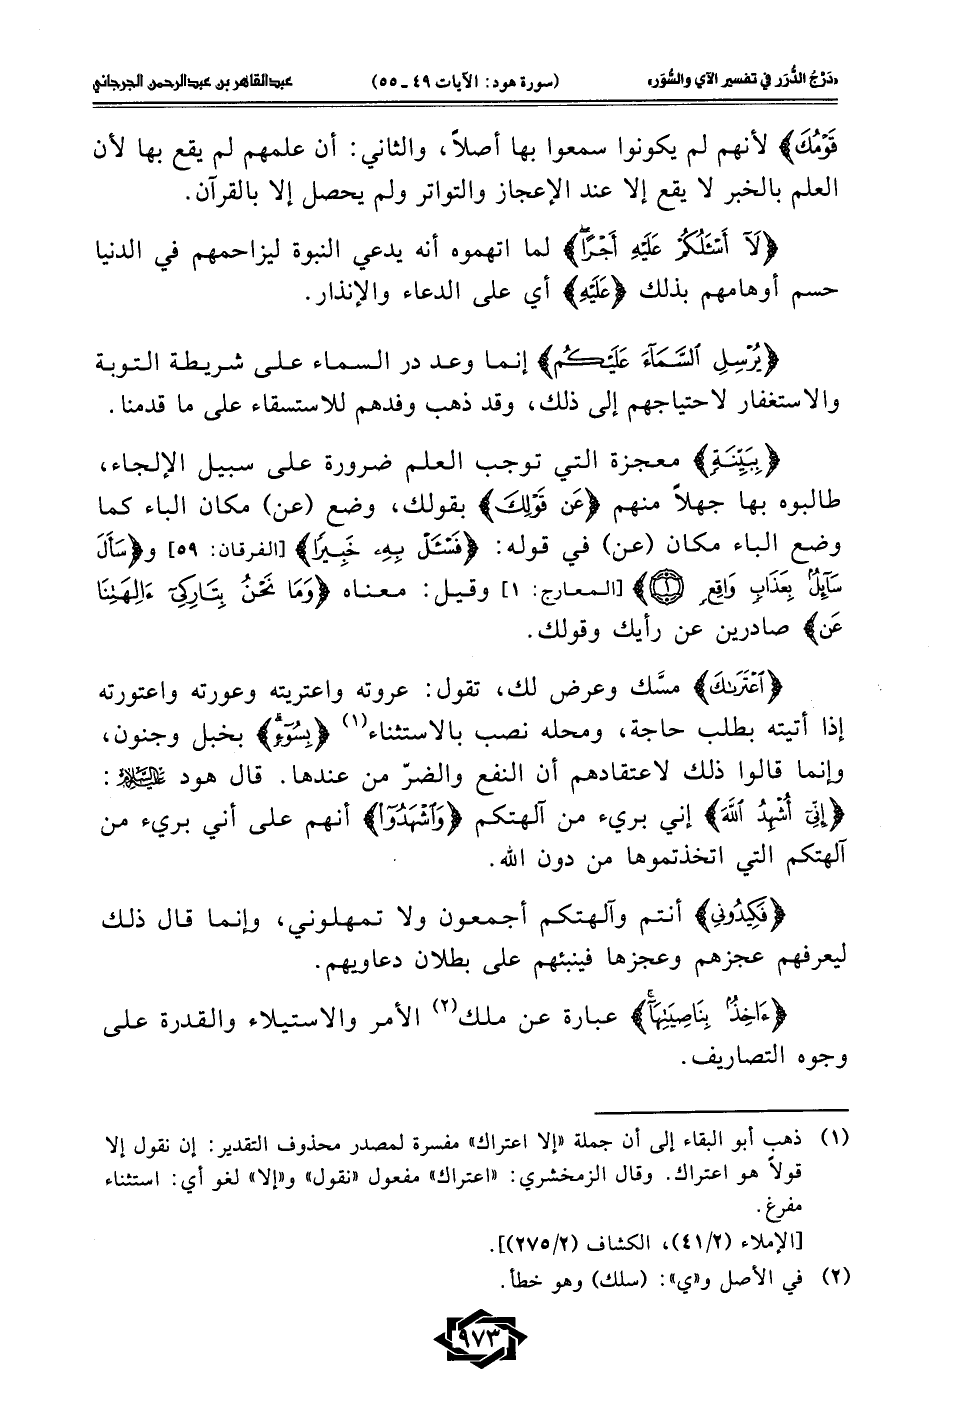 «دَرْجُ الدُّرَر في تفسير الآي والسُّوَر» (سورة هود: الآيات ٤٩ ـ ٥٥) عبدالقاهر بن عبدالرحمن الجرجاني
قَوْمُكَ﴾ لأنهم لم يكونوا سمعوا بها أصلاً، والثاني: أن علمهم لم يقع بها لأن
العلم بالخبر لا يقع إلا عند الإعجاز والتواتر ولم يحصل إلا بالقرآن.
﴿لَآ أَسْـَٔلُكُمْ عَلَيْهِ أَجْرًا﴾ لما اتهموه أنه يدعي النبوة ليزاحمهم في الدنيا
حسم أوهامهم بذلك ﴿عَلَيْهِ﴾ أي على الدعاء والإنذار.
﴿يُرْسِلِ ٱلسَّمَآءَ عَلَيْكُم﴾ إنما وعد در السماء على شريطة التوبة
والاستغفار لاحتياجهم إلى ذلك، وقد ذهب وفدهم للاستسقاء على ما قدمنا.
﴿بِبَيِّنَةٍ﴾ معجزة التي توجب العلم ضرورة على سبيل الإلجاء،
طالبوه بها جهلاً منهم ﴿عَن قَوْلِكَ﴾ بقولك، وضع (عن) مكان الباء كما
وضع الباء مكان (عن) في قوله: ﴿فَسْـَٔلْ بِهِۦ خَبِيرًا﴾ [الفرقان: ٥٩] و﴿سَأَلَ
سَآئِلٌۢ بِعَذَابٍ وَاقِعٍ ۝١﴾ [المعارج: ١] وقيل: معناه ﴿وَمَا نَحْنُ بِتَارِكِىٓ ءَالِهَتِنَا
عَن﴾ صادرين عن رأيك وقولك.
﴿ٱعْتَرَىٰكَ﴾ مسَّك وعرض لك، تقول: عروته واعتريته وعورته واعتورته
إذا أتيته بطلب حاجة، ومحله نصب بالاستثناء(١) ﴿بِسُوٓءٍ﴾ بخبل وجنون،
وإنما قالوا ذلك لاعتقادهم أن النفع والضرّ من عندها. قال هود عليه السلام:
﴿إِنِّىٓ أُشْهِدُ ٱللَّهَ﴾ إني بريء من آلهتكم ﴿وَٱشْهَدُوٓا۟﴾ أنهم على أني بريء من
آلهتكم التي اتخذتموها من دون الله.
﴿فَكِيدُونِى﴾ أنتم وآلهتكم أجمعون ولا تمهلوني، وإنما قال ذلك
ليعرفهم عجزهم وعجزها فينبئهم على بطلان دعاويهم.
﴿ءَاخِذٌۢ بِنَاصِيَتِهَآ﴾ عبارة عن ملك(٢) الأمر والاستيلاء والقدرة على
وجوه التصاريف.
(١) ذهب أبو البقاء إلى أن جملة «إلا اعتراك» مفسرة لمصدر محذوف التقدير: إن نقول إلا
قولاً هو اعتراك. وقال الزمخشري: «اعتراك» مفعول «نقول» و«إلا» لغو أي: استثناء
مفرغ.
[الإملاء (٤١/٢)، الكشاف (٢٧٥/٢)].
(٢) في الأصل و«ي»: (سلك) وهو خطأ.
٩٧٣